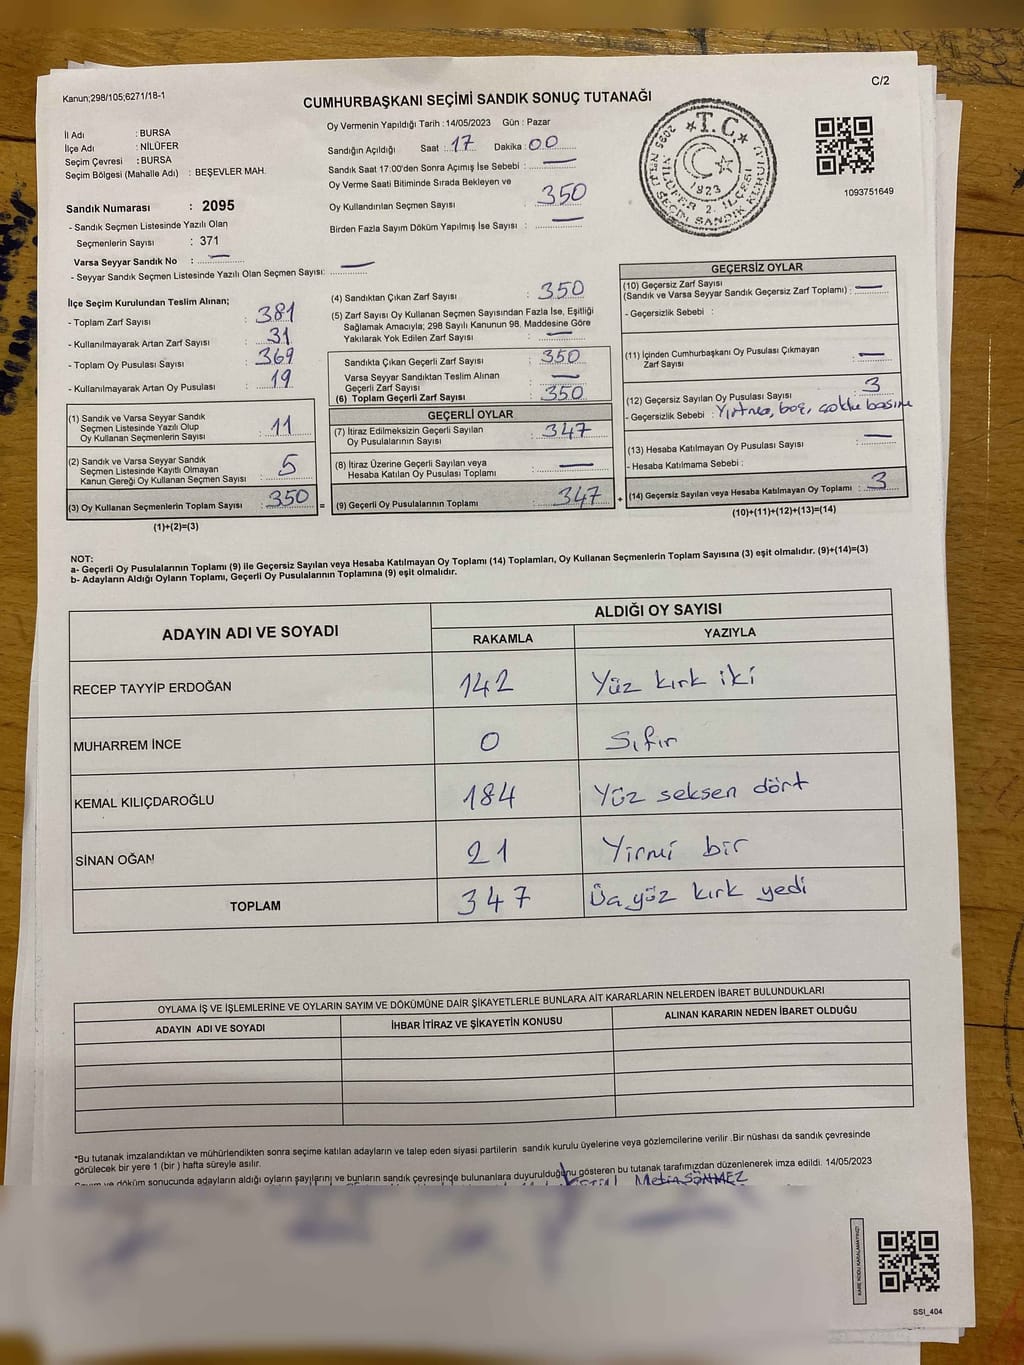 Kanun;298/105;6271/18-1
C/2
CUMHURBAŞKANI SEÇİMİ SANDIK SONUÇ TUTANAĞI
İl Adı : BURSA
İlçe Adı : NİLÜFER
Seçim Çevresi : BURSA
Seçim Bölgesi (Mahalle Adı) : BEŞEVLER MAH.
Sandık Numarası : 2095
- Sandık Seçmen Listesinde Yazılı Olan
Seçmenlerin Sayısı : 371
Varsa Seyyar Sandık No : —
- Seyyar Sandık Seçmen Listesinde Yazılı Olan Seçmen Sayısı: —
Oy Vermenin Yapıldığı Tarih :14/05/2023 Gün : Pazar
Sandığın Açıldığı Saat : 17 Dakika : 00
Sandık Saat 17:00'den Sonra Açımış İse Sebebi : —
Oy Verme Saati Bitiminde Sırada Bekleyen ve
Oy Kullandırılan Seçmen Sayısı 350
Birden Fazla Sayım Döküm Yapılmış İse Sayısı : —
T.C.
1923
NİLÜFER 2. İLÇESİ
2095 NOLU SEÇİM SANDIK KURULU
1093751649
İlçe Seçim Kurulundan Teslim Alınan;
- Toplam Zarf Sayısı : 381
- Kullanılmayarak Artan Zarf Sayısı : 31
- Toplam Oy Pusulası Sayısı : 369
- Kullanılmayarak Artan Oy Pusulası : 19
(1) Sandık ve Varsa Seyyar Sandık
Seçmen Listesinde Yazılı Olup
Oy Kullanan Seçmenlerin Sayısı : 11
(2) Sandık ve Varsa Seyyar Sandık
Seçmen Listesinde Kayıtlı Olmayan
Kanun Gereği Oy Kullanan Seçmen Sayısı : 5
(3) Oy Kullanan Seçmenlerin Toplam Sayısı : 350
(1)+(2)=(3)
=
(4) Sandıktan Çıkan Zarf Sayısı : 350
(5) Zarf Sayısı Oy Kullanan Seçmen Sayısından Fazla İse, Eşitliği
Sağlamak Amacıyla; 298 Sayılı Kanunun 98. Maddesine Göre
Yakılarak Yok Edilen Zarf Sayısı : —
Sandıkta Çıkan Geçerli Zarf Sayısı : 350
Varsa Seyyar Sandıktan Teslim Alınan
Geçerli Zarf Sayısı : —
(6) Toplam Geçerli Zarf Sayısı : 350
GEÇERLİ OYLAR
(7) İtiraz Edilmeksizin Geçerli Sayılan
Oy Pusulalarının Sayısı : 347
(8) İtiraz Üzerine Geçerli Sayılan veya
Hesaba Katılan Oy Pusulası Toplamı : —
(9) Geçerli Oy Pusulalarının Toplamı : 347
+
GEÇERSİZ OYLAR
(10) Geçersiz Zarf Sayısı
(Sandık ve Varsa Seyyar Sandık Geçersiz Zarf Toplamı) : —
- Geçersizlik Sebebi :
(11) İçinden Cumhurbaşkanı Oy Pusulası Çıkmayan
Zarf Sayısı : —
(12) Geçersiz Sayılan Oy Pusulası Sayısı : 3
- Geçersizlik Sebebi : Yırtma, boş, çoklu basım
(13) Hesaba Katılmayan Oy Pusulası Sayısı : —
- Hesaba Katılmama Sebebi :
(14) Geçersiz Sayılan veya Hesaba Katılmayan Oy Toplamı : 3
(10)+(11)+(12)+(13)=(14)
NOT:
a- Geçerli Oy Pusulalarının Toplamı (9) ile Geçersiz Sayılan veya Hesaba Katılmayan Oy Toplamı (14) Toplamları, Oy Kullanan Seçmenlerin Toplam Sayısına (3) eşit olmalıdır. (9)+(14)=(3)
b- Adayların Aldığı Oyların Toplamı, Geçerli Oy Pusulalarının Toplamına (9) eşit olmalıdır.
ADAYIN ADI VE SOYADI
ALDIĞI OY SAYISI
RAKAMLA YAZIYLA
RECEP TAYYİP ERDOĞAN 142 Yüz kırk iki
MUHARREM İNCE 0 Sıfır
KEMAL KILIÇDAROĞLU 184 Yüz seksen dört
SİNAN OĞAN 21 Yirmi bir
TOPLAM 347 Üç yüz kırk yedi
OYLAMA İŞ VE İŞLEMLERİNE VE OYLARIN SAYIM VE DÖKÜMÜNE DAİR ŞİKAYETLERLE BUNLARA AİT KARARLARIN NELERDEN İBARET BULUNDUKLARI
ADAYIN ADI VE SOYADI İHBAR İTİRAZ VE ŞİKAYETİN KONUSU ALINAN KARARIN NEDEN İBARET OLDUĞU
*Bu tutanak imzalandıktan ve mühürlendikten sonra seçime katılan adayların ve talep eden siyasi partilerin sandık kurulu üyelerine veya gözlemcilerine verilir .Bir nüshası da sandık çevresinde
görülecek bir yere 1 (bir ) hafta süreyle asılır.
Sayım ve döküm sonucunda adayların aldığı oyların sayılarını ve bunların sandık çevresinde bulunanlara duyurulduğunu gösteren bu tutanak tarafımızdan düzenlenerek imza edildi. 14/05/2023
Metin SÖNMEZ
KARE KODU KARALAMAYINIZ!
SSI_404